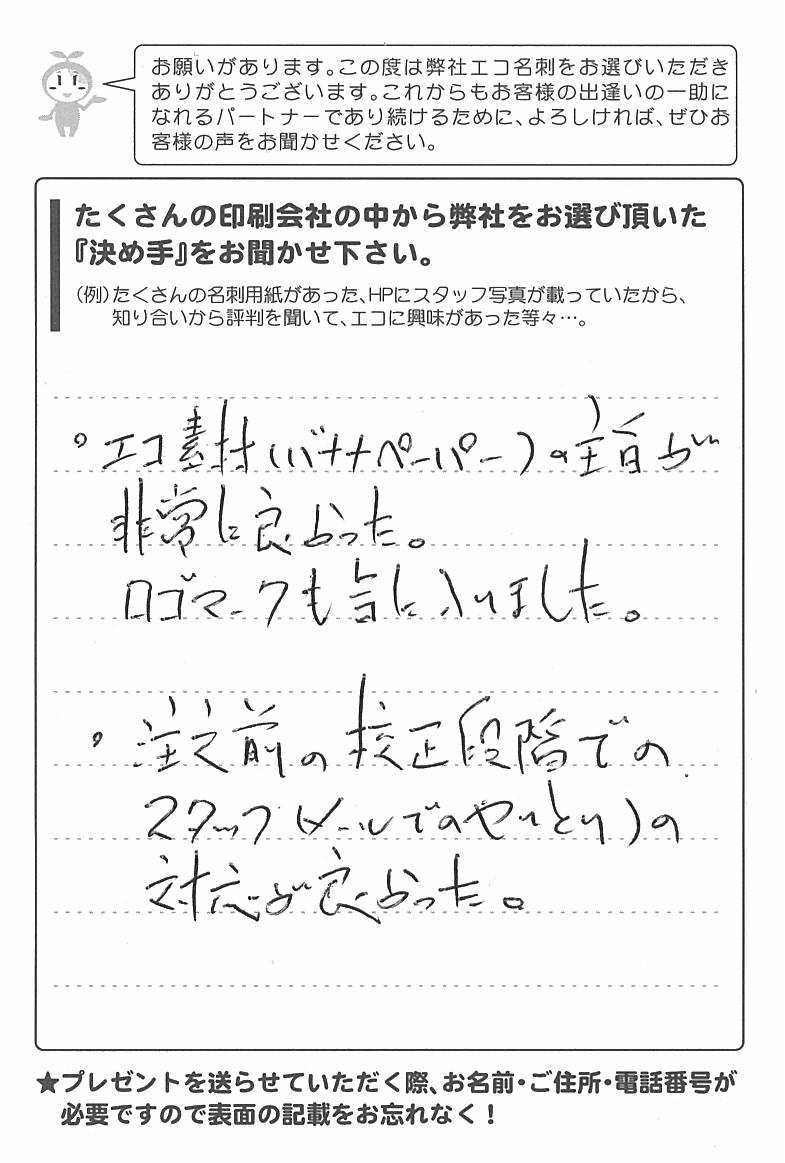 お願いがあります。この度は弊社エコ名刺をお選びいただき
ありがとうございます。これからもお客様の出逢いの一助に
なれるパートナーであり続けるために、よろしければ、ぜひお
客様の声をお聞かせください。
たくさんの印刷会社の中から弊社をお選び頂いた
『決め手』をお聞かせ下さい。
（例）たくさんの名刺用紙があった、HPにスタッフ写真が載っていたから、
知り合いから評判を聞いて、エコに興味があった等々…。
。エコ素材（バナナペーパー）の主旨が
非常に良かった。
ロゴマークも気に入りました。
。注文前の校正段階での
スタッフ（メールでのやりとり）の
対応が良かった。
★プレゼントを送らせていただく際、お名前・ご住所・電話番号が
必要ですので表面の記載をお忘れなく！